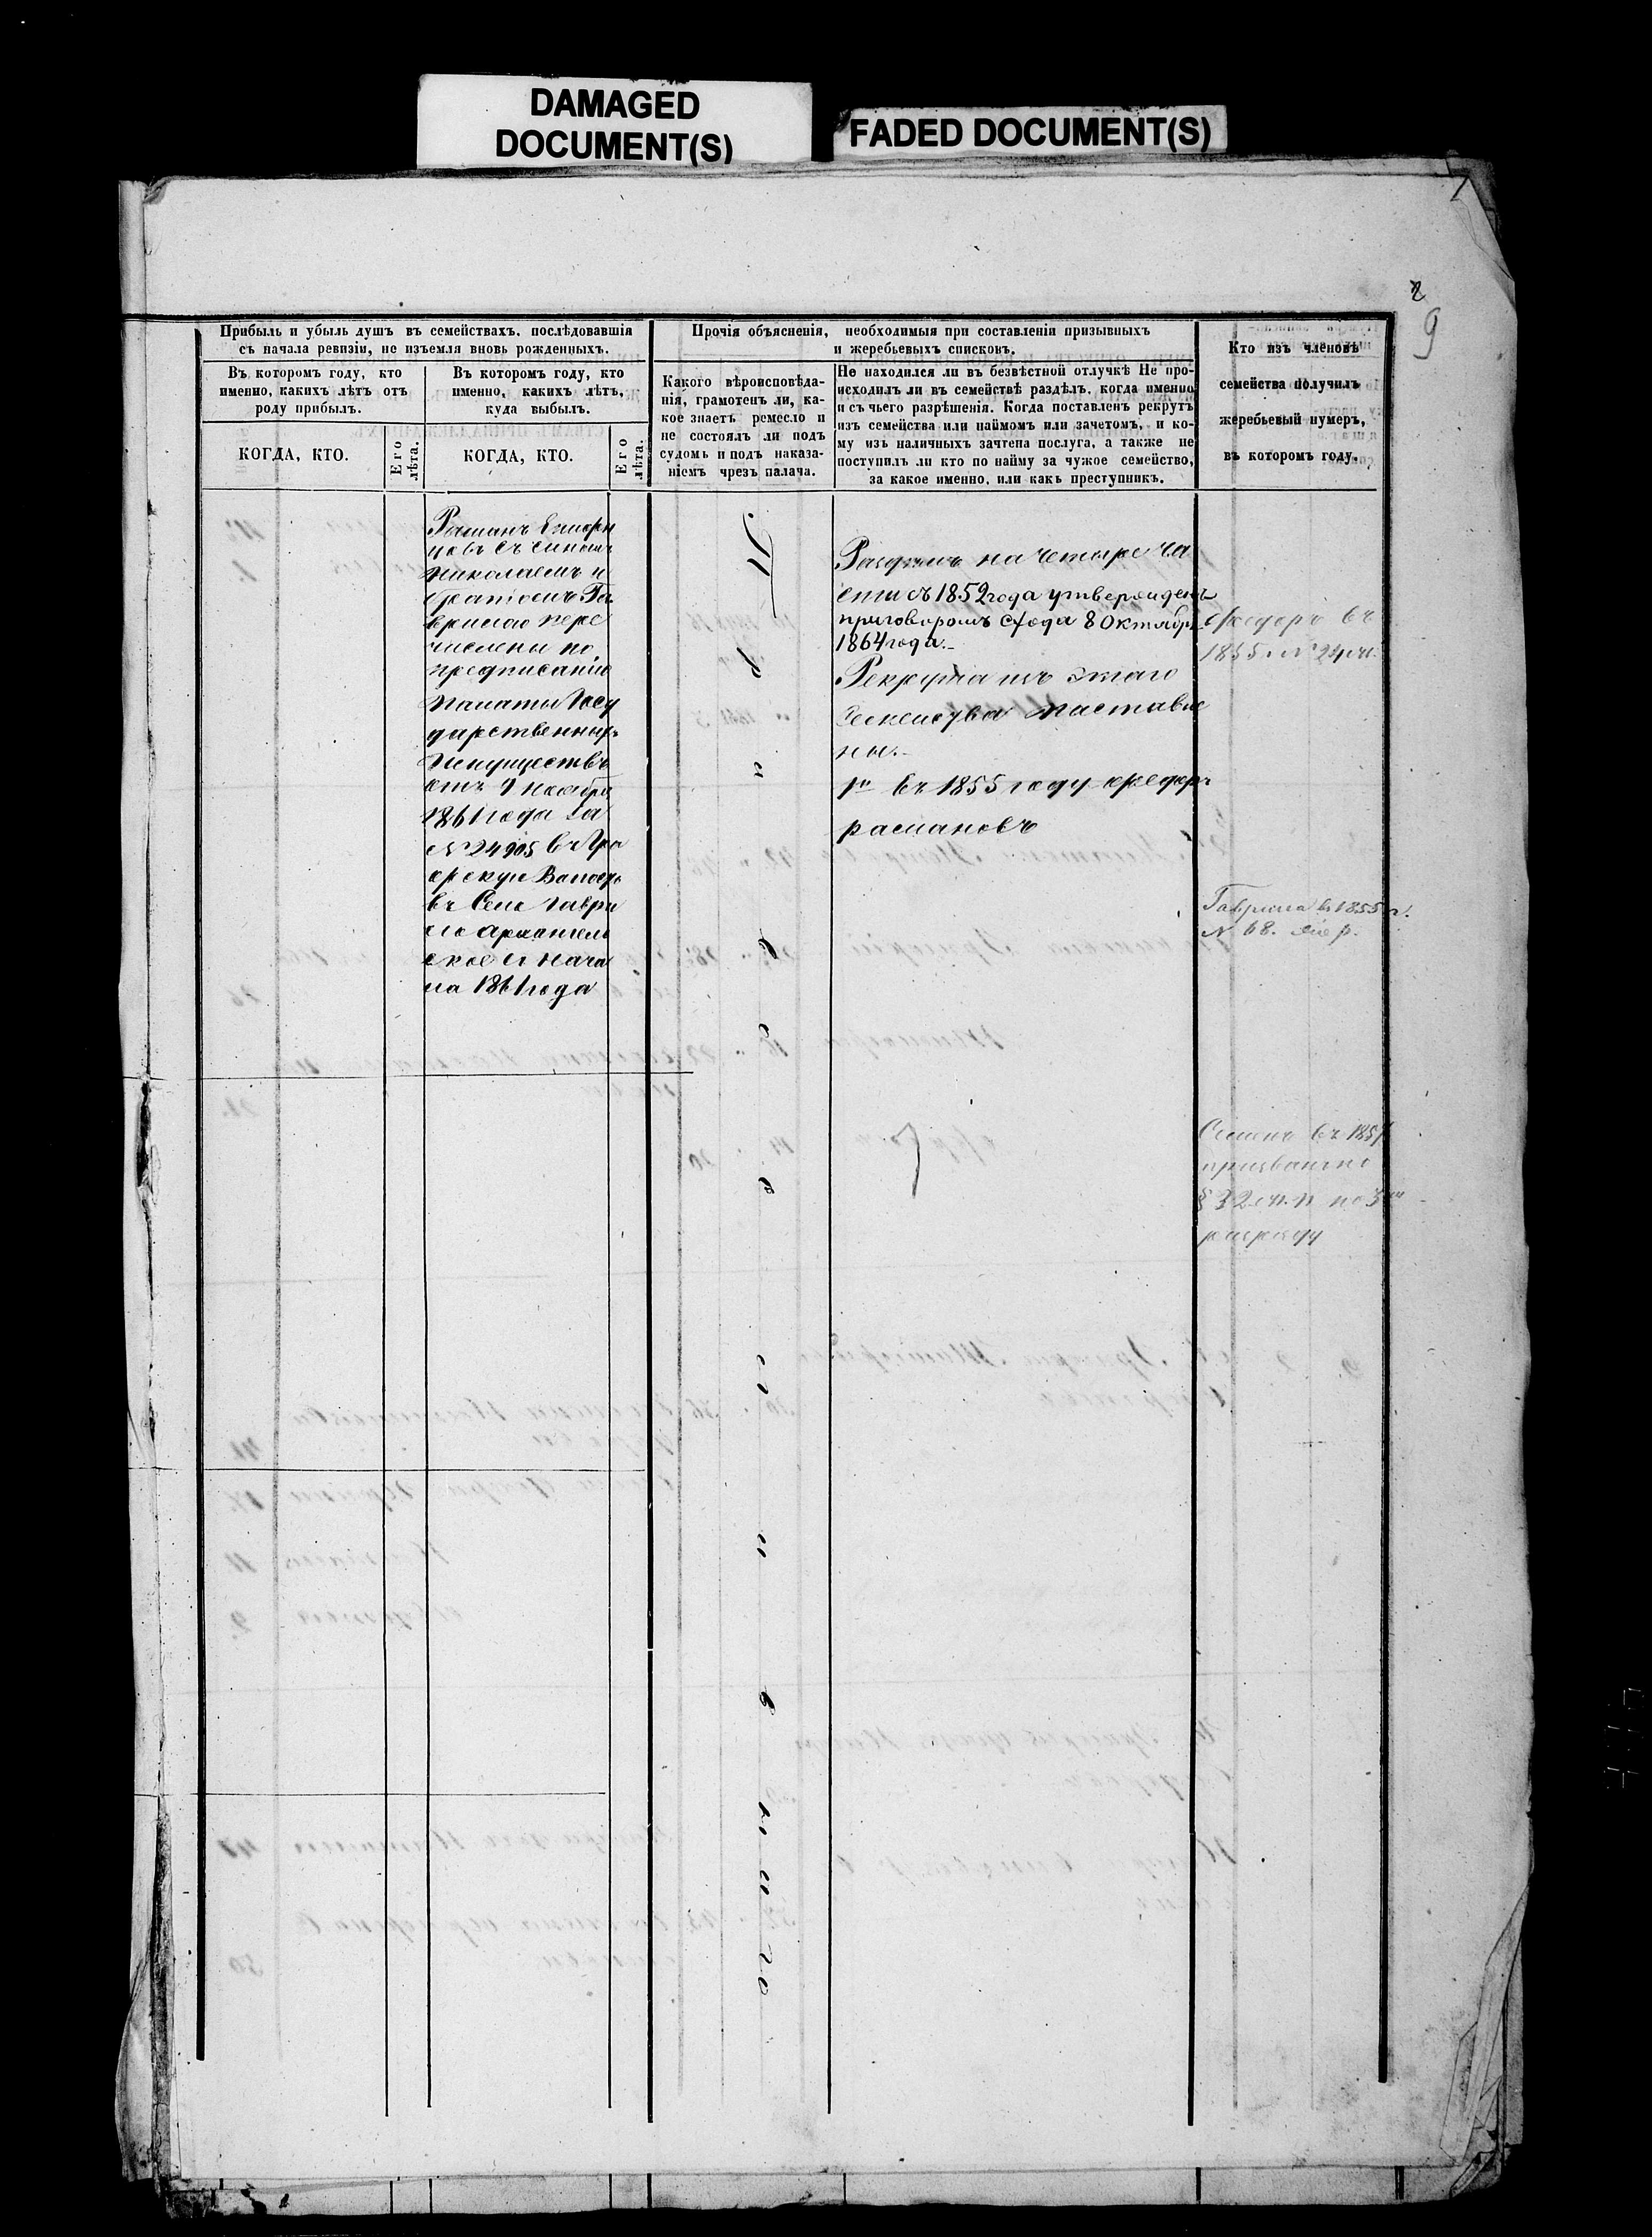 DAMAGED
DOCUMENT(S)
FADED DOCUMENT(S)
9
Прибыль и убыль душъ въ семействахъ, послѣдовавшія
съ начала ревизіи, не изъемля вновь рожденныхъ.
Въ которомъ году, кто
именно, какихъ лѣтъ отъ
роду прибылъ.
КОГДА, КТО.
Его
лѣта.
Въ которомъ году, кто
именно, какихъ лѣтъ,
куда выбылъ.
КОГДА, КТО.
Его
лѣта.
Прочія объясненія, необходимыя при составленіи призывныхъ
и жеребьевыхъ списковъ.
Какого вѣроисповѣда-
нія, грамотенъ ли, ка-
кое знаетъ ремесло и
не состоялъ ли подъ
судомъ и подъ наказа-
ніемъ чрезъ палача.
Не находился ли въ безвѣстной отлучкѣ Не про-
исходилъ ли въ семействѣ раздѣлъ, когда именно
и съ чьего разрѣшенія. Когда поставленъ рекрутъ
изъ семейства или наймомъ или зачетомъ, и ко-
му изъ наличныхъ зачтена послуга, а также не
поступилъ ли кто по найму за чужое семейство,
за какое именно, или какъ преступникъ.
Кто изъ членовъ
семейства получилъ
жеребьевый нумеръ,
въ которомъ году.
съ сыномъ
Николаемъ и
братомъ Га
врилою пере
числены по
предписанію
Палаты Госу
дарственныхъ
Имуществъ
отъ 7 Ноября
1861 года за
№ 24905 въ
въ Селе Гаври
ло Архангель
ское съ нача
ла 1861 года
Раздѣлъ на четыре ча
сти съ 1852 года утвержденъ
приговоромъ схода 8 Октября
1864 года.
Рекрута изъ этаго
Семейства поставле
ны.
1й въ 1855 году Федоръ
расмановъ
Федоръ въ
1855 г. №
Гаврила в 1855 г.
№ 68.
Семенъ въ 185
§ 32 по 3му
разряду